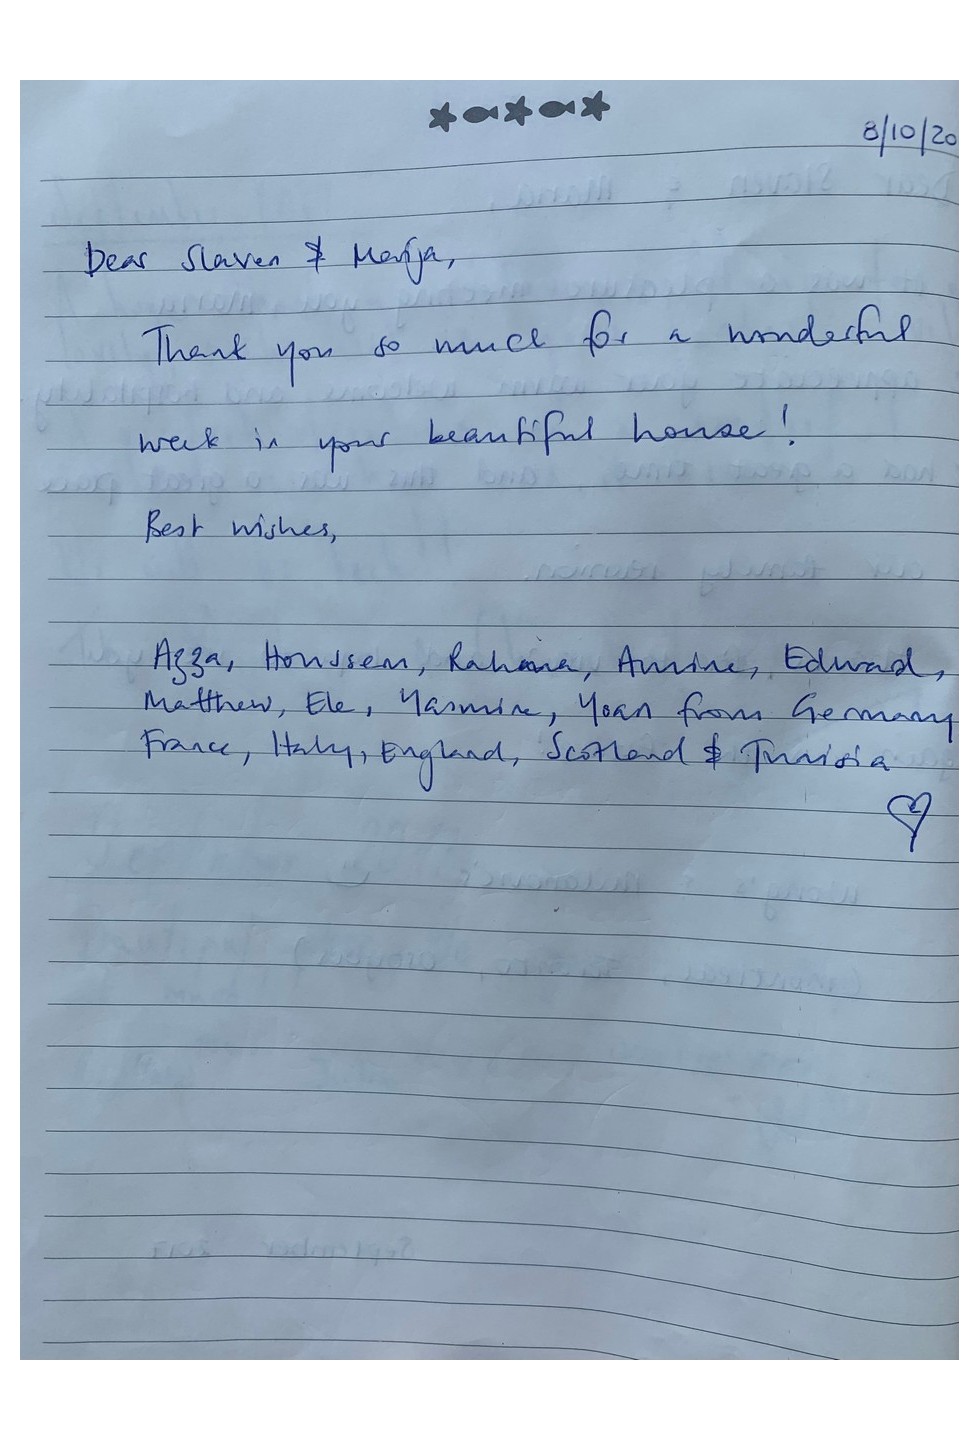 8/10/20
Dear Slaven & Marija,
Thank you so much for a wonderful
week in your beautiful house!
Best wishes,
Azza, Houssem, Rahma, Amine, Edward,
Matthew, Ele, Yasmine, Yoan from Germany
France, Italy, England, Scotland & Tunisia